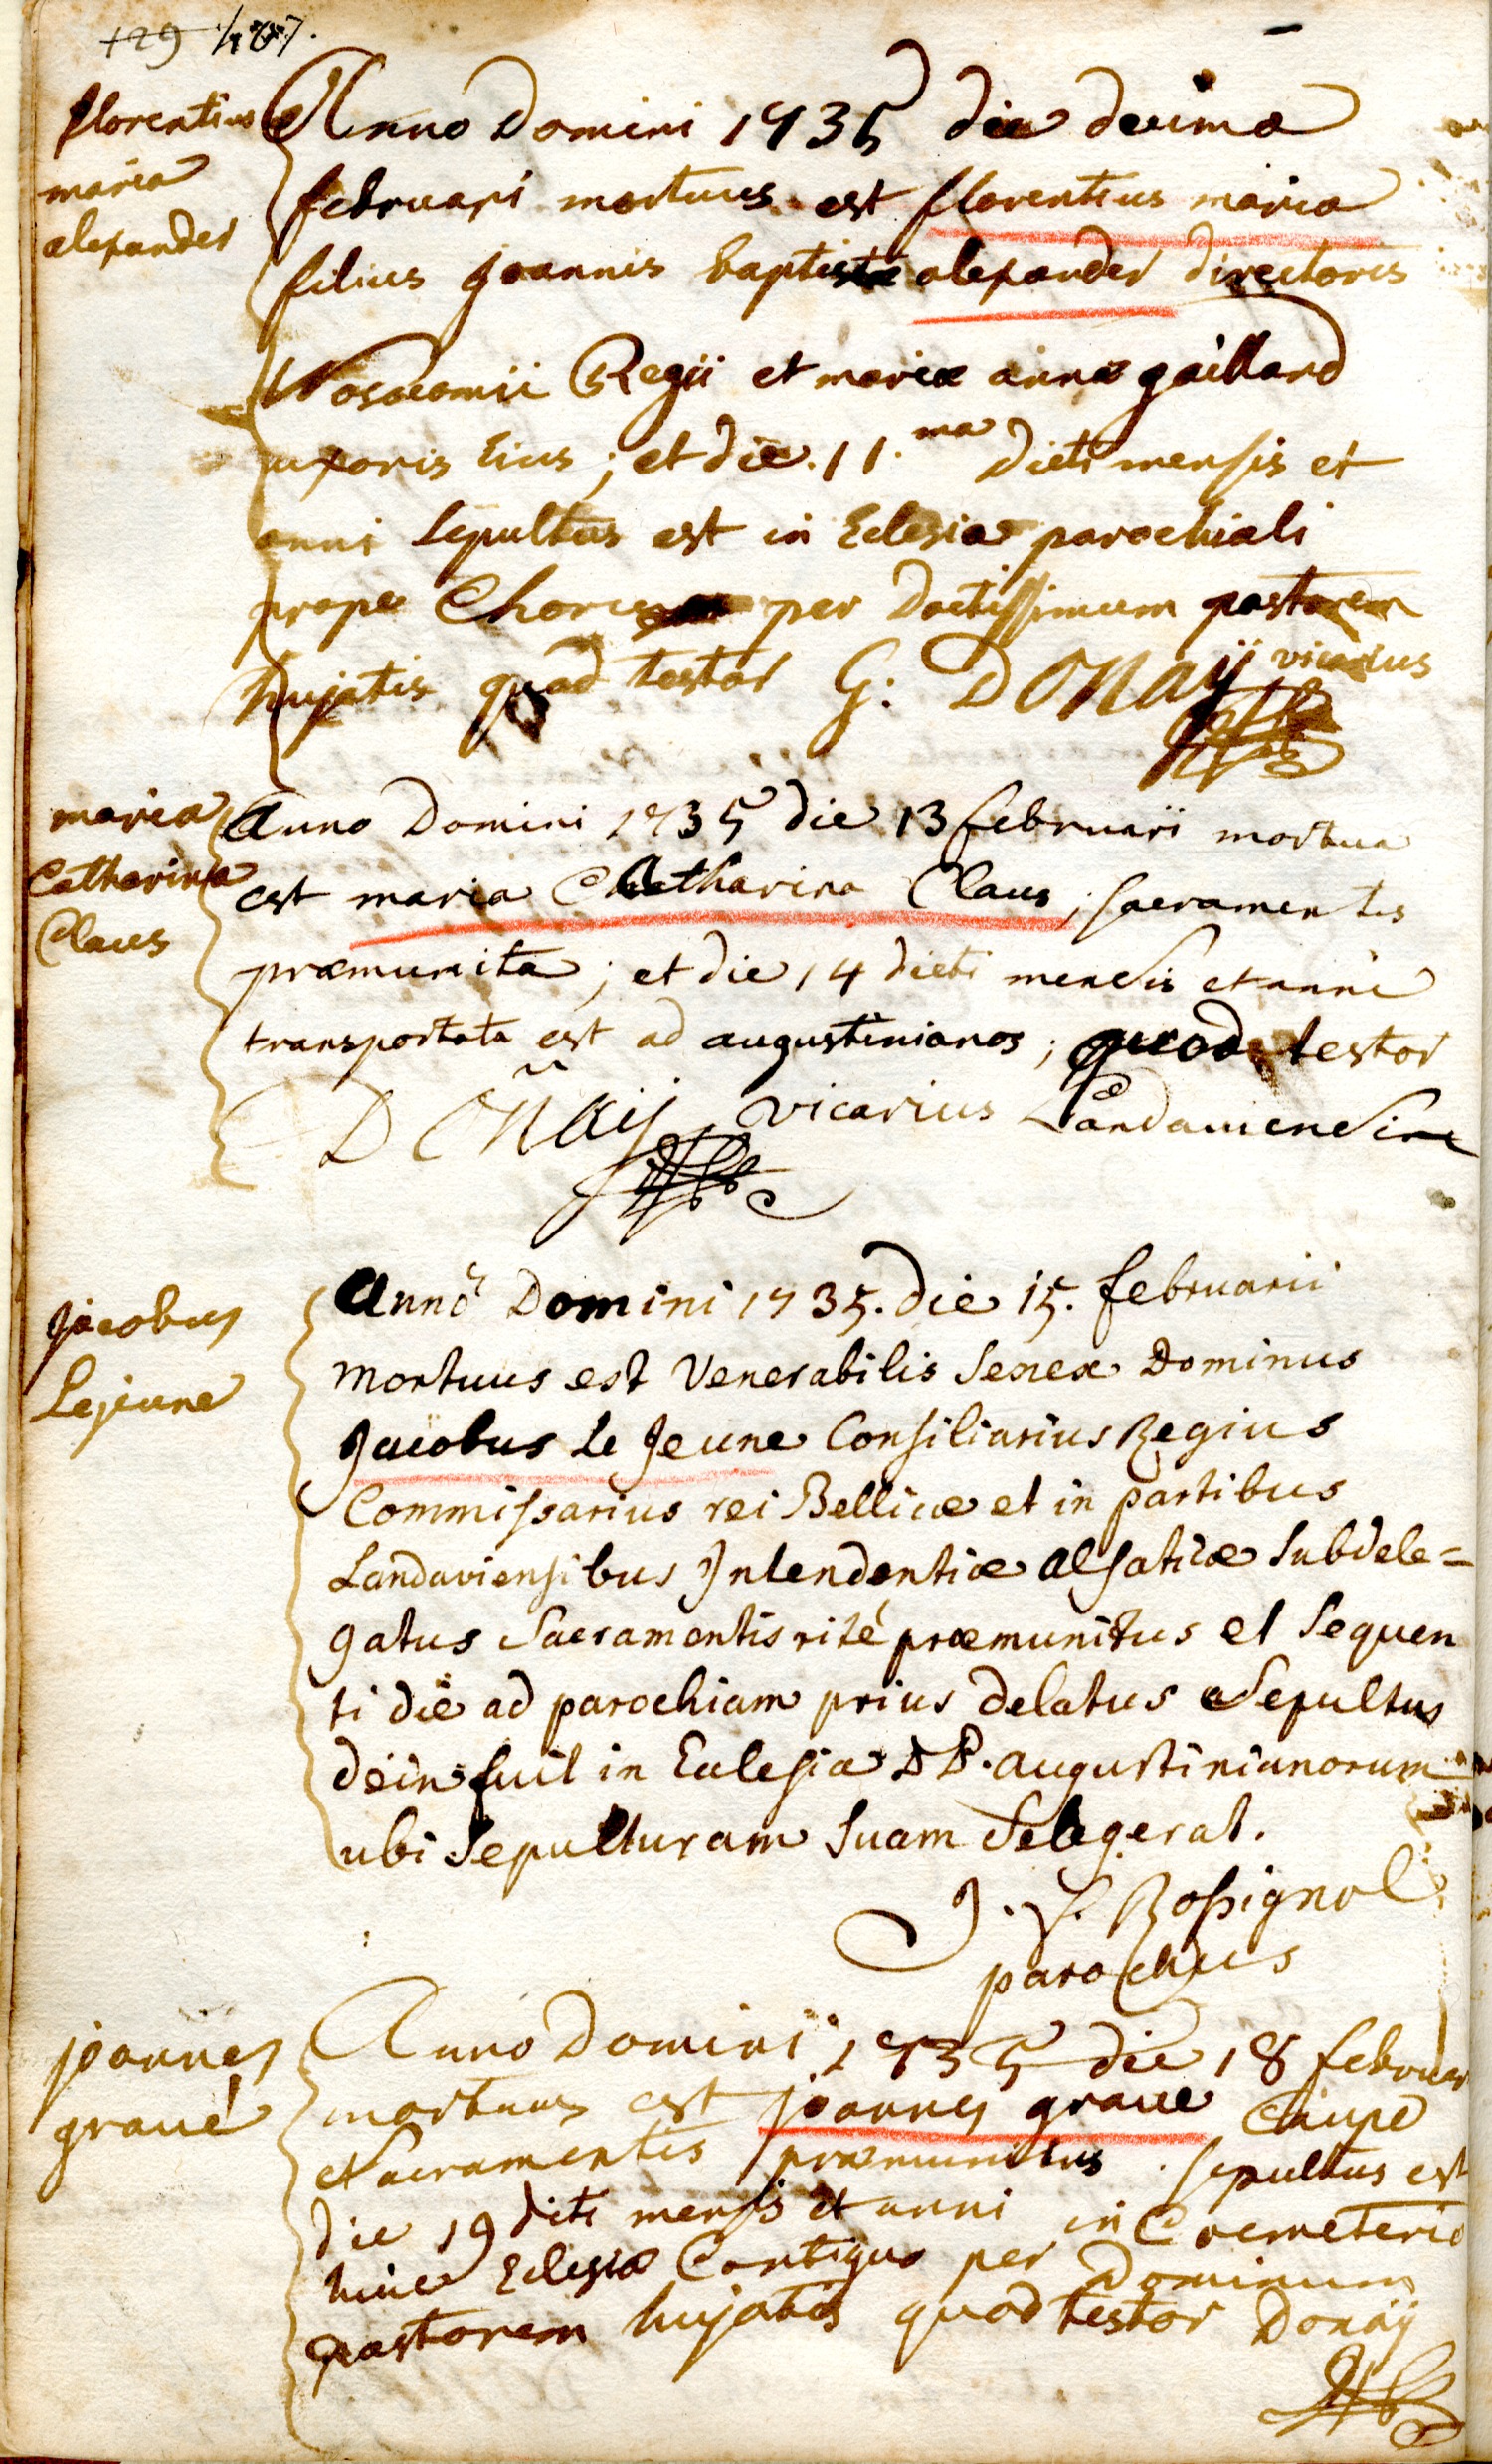 129 407.
florentius
maria
alexander
Anno Domini 1735 die decima
februari mortuus est florentius maria
filius joannis baptistæ alexander directoris
Nosocomii Regii et mariæ annæ gaillard
uxoris Eius ; et die . 11.ma dicti mensis et
anni Sepultus est in Eclesia parochiali
prope Chorum per doctissimum pastorem
hujatis quod testor G: Donaÿ vicarius
maria
Catharina
Claus
Anno Domini 1735 die 13 februarii mortua
est maria Catharina Claus ; sacramentis
præmunita ; et die 14 dicti mensis et anni
transportata est ad augustinianos ; quod testor
Donaÿ vicarius Landaviensis
Jacobus
Lejeune
Anno Domini 1735. die 15. februarii
Mortuus est Venerabilis Senex Dominus
Jacobus Le Jeune Consiliarius Regius
Commissarius rei Bellicæ et in partibus
Landaviensibus Intendentiæ alsaticæ Subdele=
gatus Sacramentis rité præmunitus et Sequen
ti die ad parochiam prius delatus Sepultus
dein fuit in Eclesia PP. augustinianorum
ubi Sepulturam Suam Selegerat.
J. Rossignol
parochus
joannes
graué
Anno Domini 1735 die 18 februar
mortuus est joannes graue
Sacramentis præmunitus . sepultus est
die 19 dicti mensis et anni in Coemeterio
huic Eclesiæ Contiguo per Dominum
pastorem hujatis quod testor Donaÿ